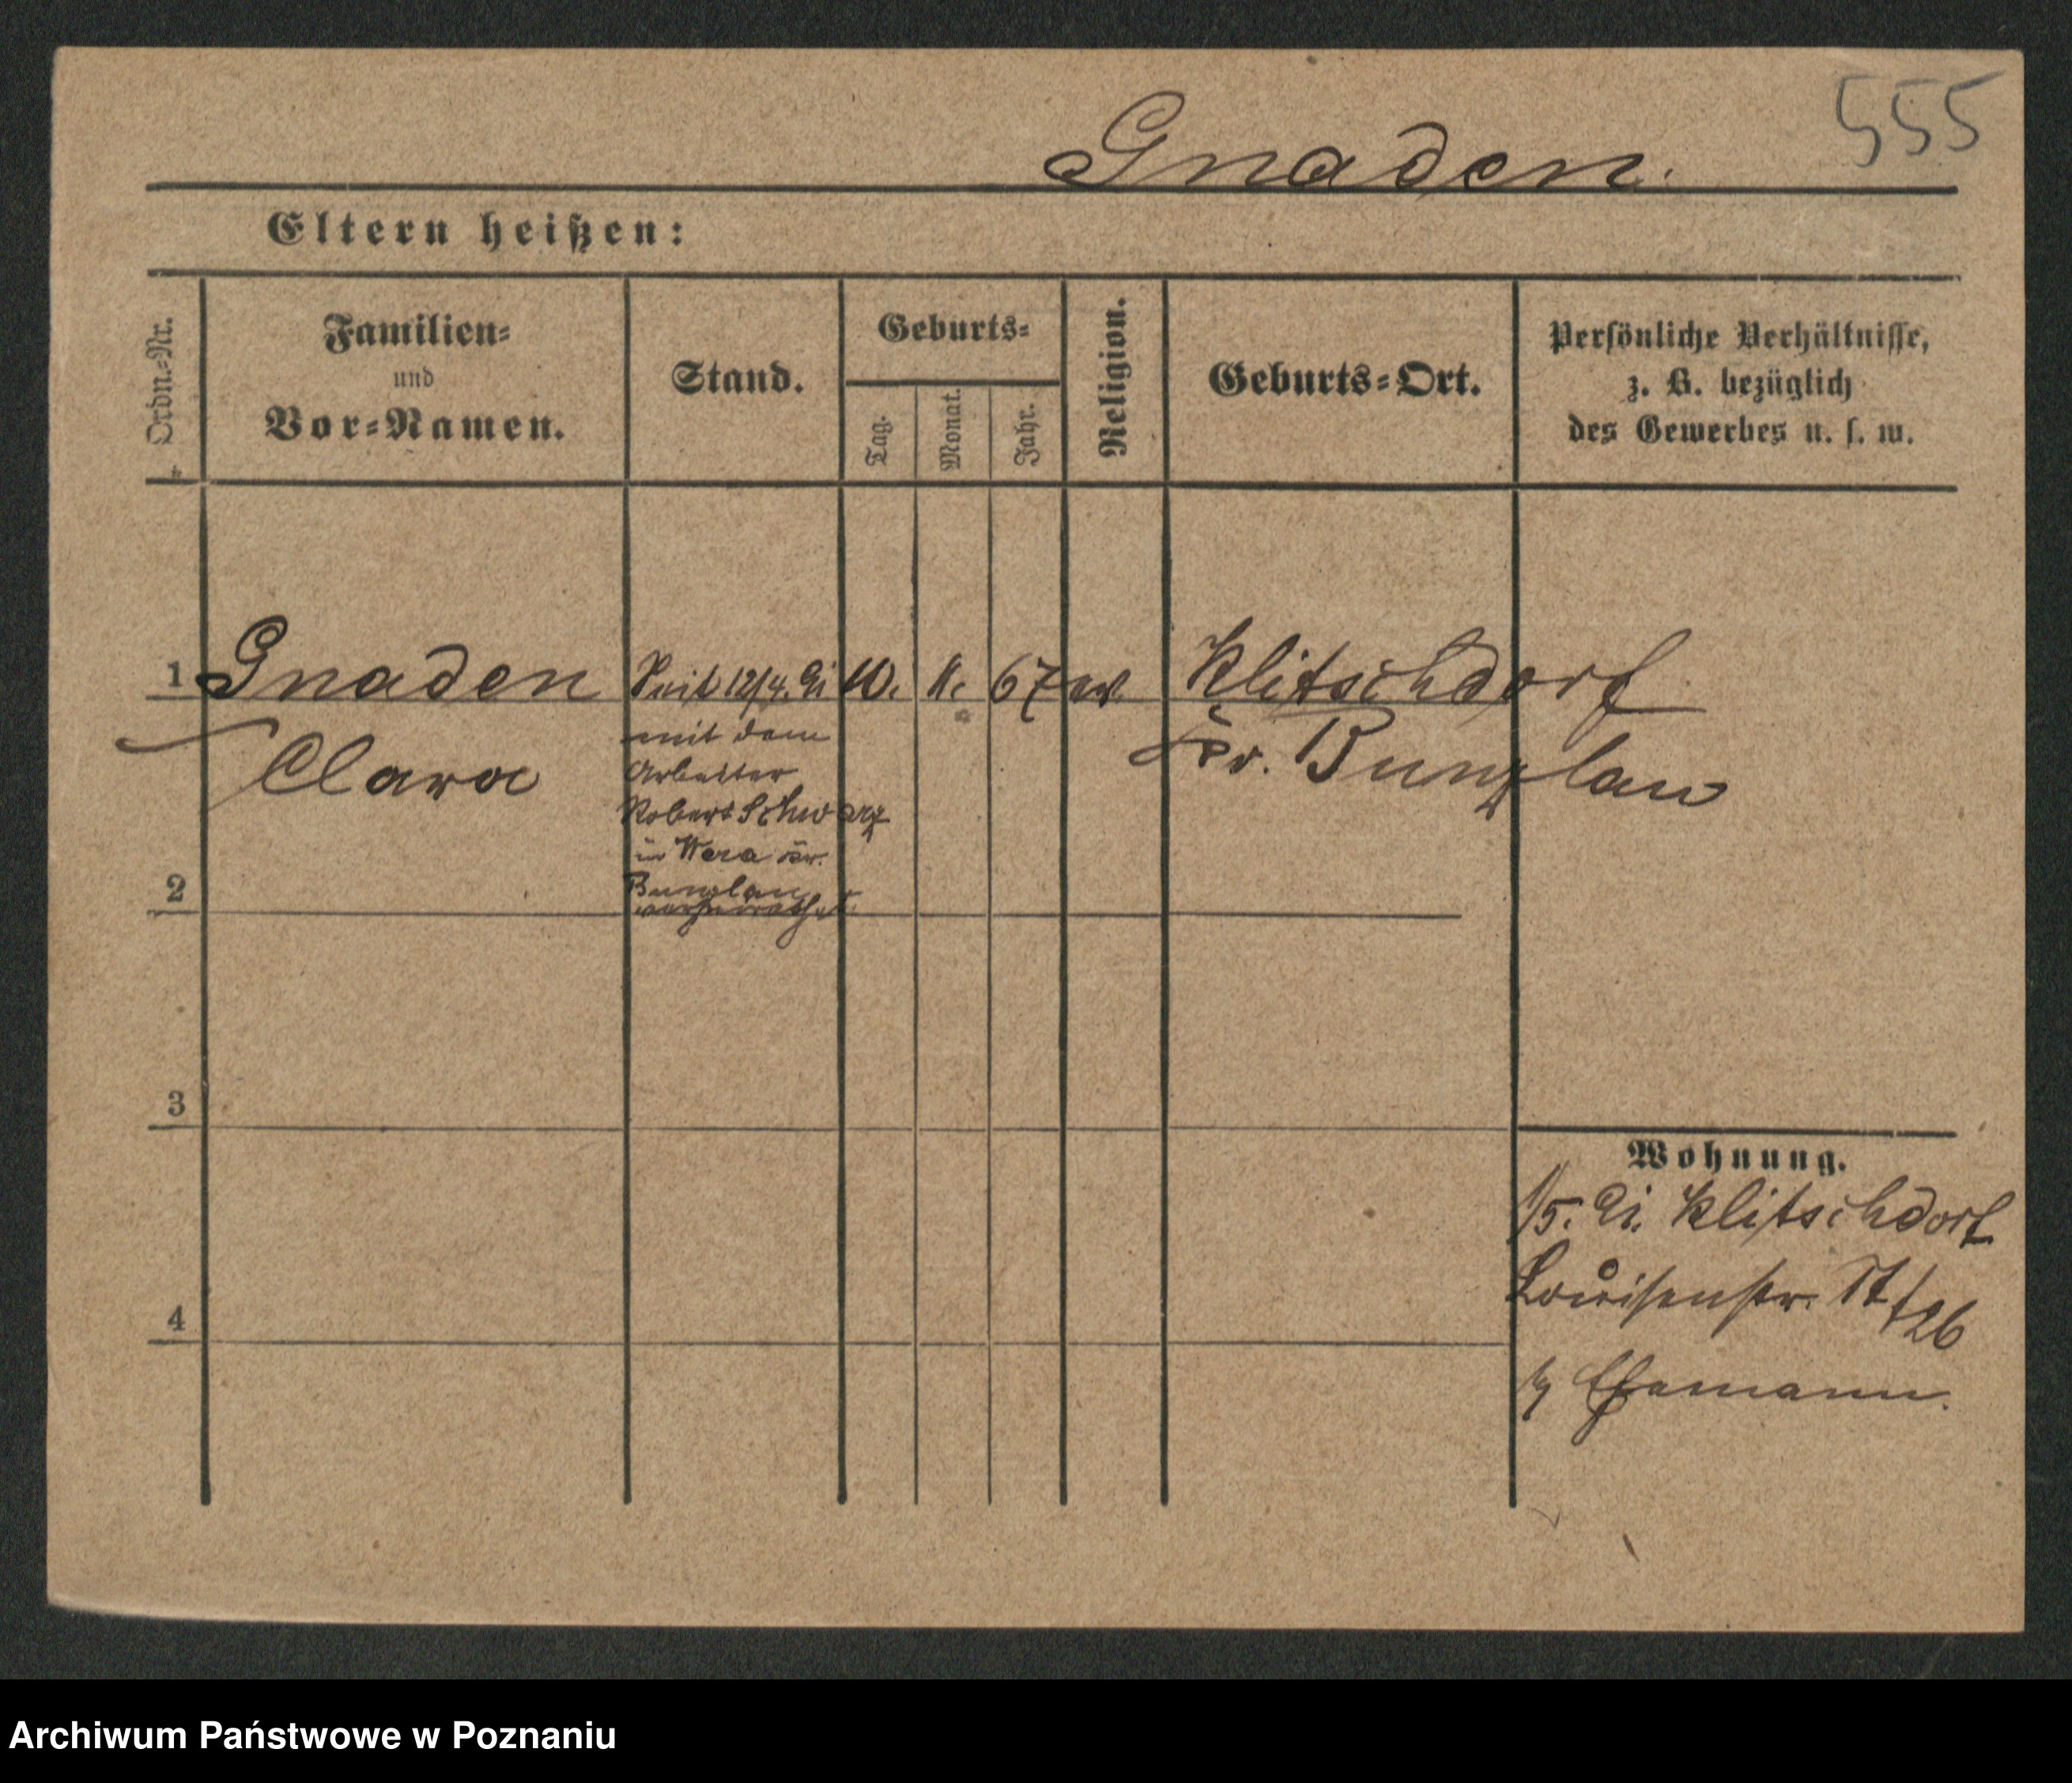 555
Gnaden.
Eltern heißen:
Ordn.-Nr.
Familien-
und
Vor-Namen.
Stand.
Geburts-
Tag.
Monat.
Jahr.
Religion.
Geburts-Ort.
Persönliche Verhältnisse,
z. B. bezüglich
des Gewerbes u. s. w.
1 Gnaden Seit 12/4. 91 10. 11. 67 ev. Klitschdorf
Clara
Kr. Bunzlau
mit dem
Arbeiter
Robert Schwarz
in
Kr.
Bunzlau
verheirathet
2
3
4
Wohnung.
1/5. 91. Klitschdorf
Louisenstr. 26
Ehemann.
Archiwum Państwowe w Poznaniu